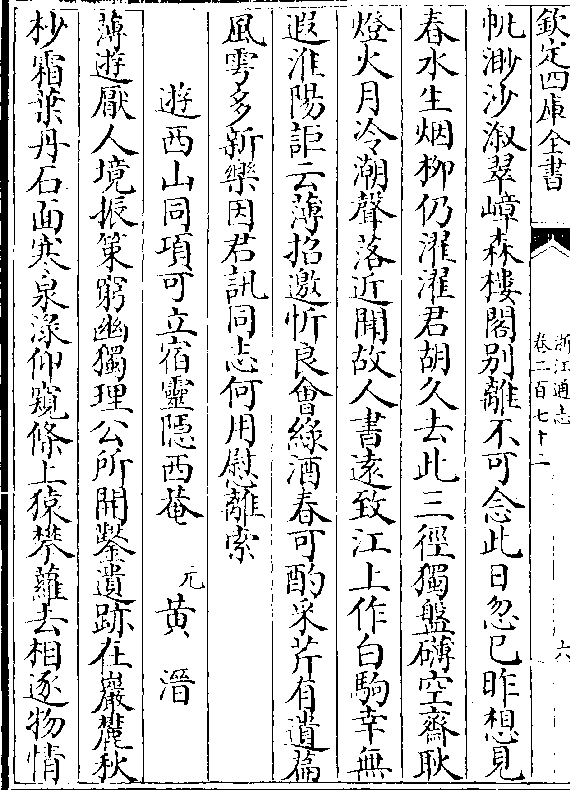 欽定四庫全書
浙江通志
卷二百七十二
六
帆渺沙溆翠嶂森樓閣别離不可念此日忽已昨想見
春水生烟柳仍濯濯君胡久去此三徑獨盤礴空齋耿
燈火月冷潮聲落近聞故人書遠致江上作白駒幸無
遐淮陽詎云薄招邀忻良㑹緑酒春可酌采芹有遺篇
風雩多新樂因君訊同志何用慰離索
遊西山同項可立宿靈隱西菴 元 黄溍
薄遊厭人境振策窮幽獨理公所開鑿遺跡在巖麓秋
杪霜葉丹石面寒泉渌仰窺條上猿攀蘿去相逐物情